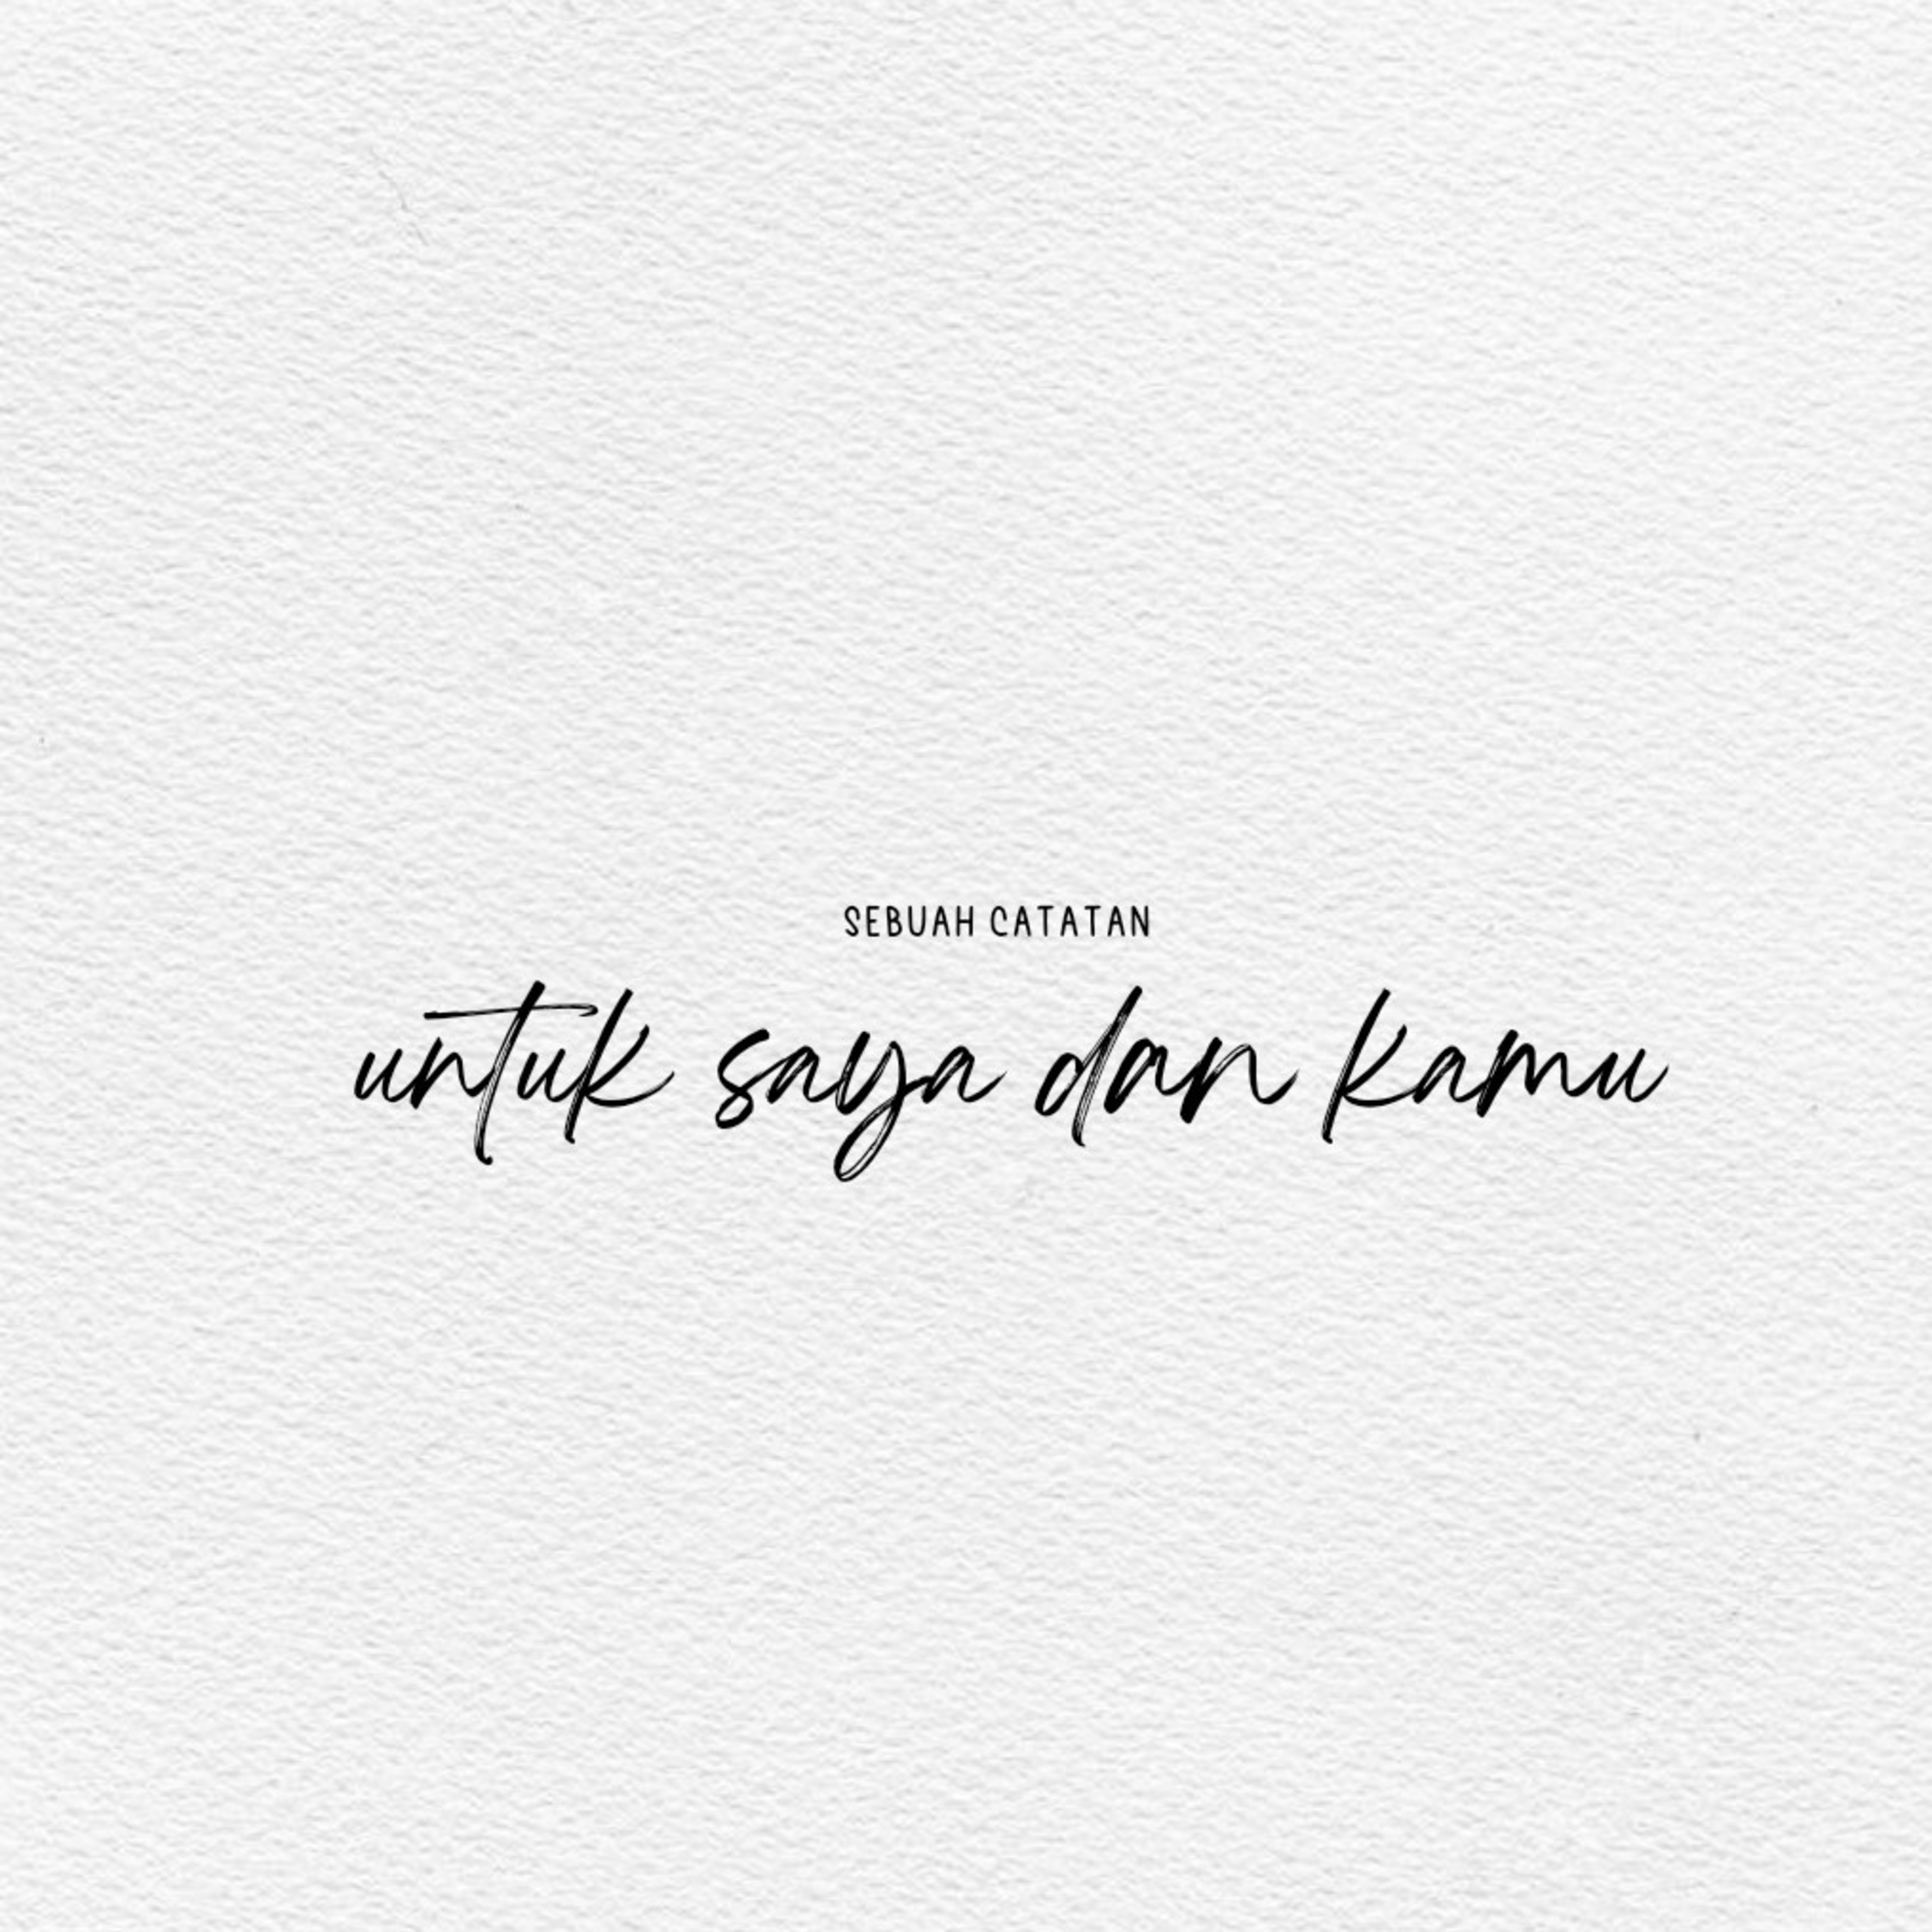 SEBUAH CATATAN
untuk saya dan kamu